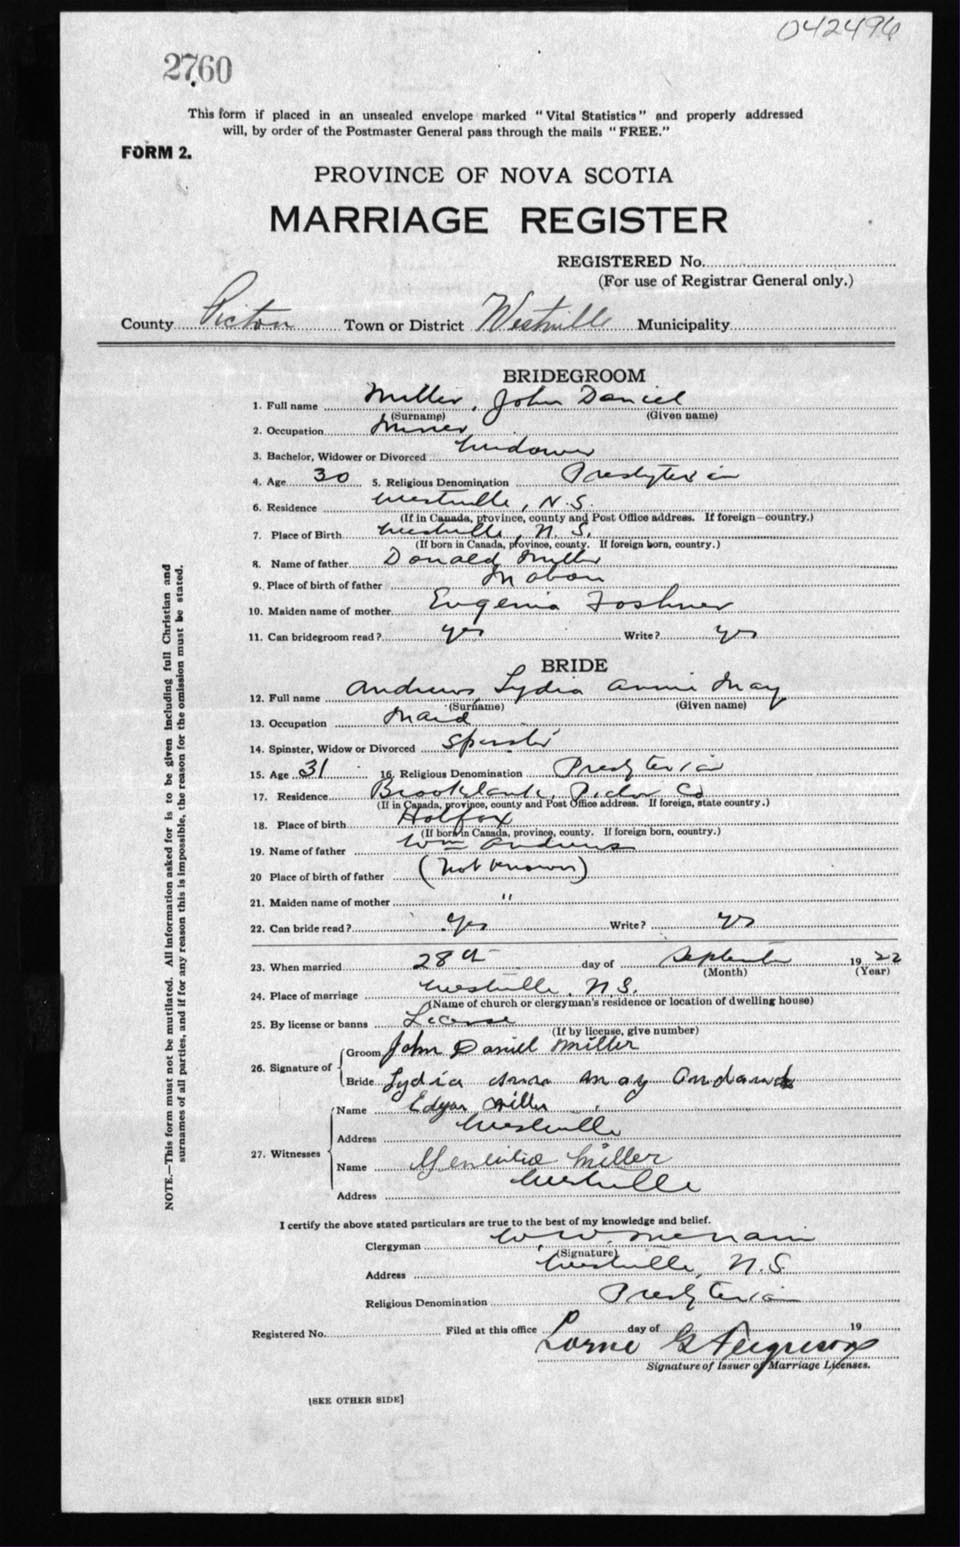 042496
2760
This form if placed in an unsealed envelope marked "Vital Statistics" and properly addressed
will, by order of the Postmaster General pass through the mails "FREE."
FORM 2.
PROVINCE OF NOVA SCOTIA
MARRIAGE REGISTER
REGISTERED No.
(For use of Registrar General only.)
County Pictou Town or District Westville Municipality
BRIDEGROOM
1. Full name Miller, John Daniel
(Surname) (Given name)
2. Occupation Miner
3. Bachelor, Widower or Divorced Widower
4. Age 30 5. Religious Denomination Presbyterian
6. Residence Westville, N.S.
(If in Canada, province, county and Post Office address. If foreign—country.)
7. Place of Birth Westville, N.S.
(If born in Canada, province, county. If foreign born, country.)
8. Name of father Donald Miller
9. Place of birth of father Mabou
10. Maiden name of mother Eugenia
11. Can bridegroom read? yes Write? yes
BRIDE
12. Full name Andrews, Lydia Annie May
(Surname) (Given name)
13. Occupation Maid
14. Spinster, Widow or Divorced Spinster
15. Age 31 16. Religious Denomination Presbyterian
17. Residence Brooklands, Pictou Co
(If in Canada, province, county and Post Office address. If foreign, state country.)
18. Place of birth Halifax
(If born in Canada, province, county. If foreign born, country.)
19. Name of father Wm Andrews
20 Place of birth of father (Not known)
21. Maiden name of mother "
22. Can bride read? Yes Write? yes
23. When married 28th day of September 1922
(Month) (Year)
24. Place of marriage Westville, N.S.
(Name of church or clergyman's residence or location of dwelling house)
25. By license or banns License
(If by license, give number)
26. Signature of
Groom John Daniel Miller
Bride Lydia May
27. Witnesses
Name Edgar Miller
Address Westville
Name Miller
Westville
Address
I certify the above stated particulars are true to the best of my knowledge and belief.
Clergyman W.W.
(Signature)
Address Westville, N.S.
Religious Denomination Presbyterian
Registered No. Filed at this office day of 19
Lorne G Ferguson
Signature of Issuer of Marriage Licenses.
[SEE OTHER SIDE]
NOTE.—This form must not be mutilated. All information asked for is to be given including full Christian and
surnames of all parties, and if for any reason this is impossible, the reason for the omission must be stated.